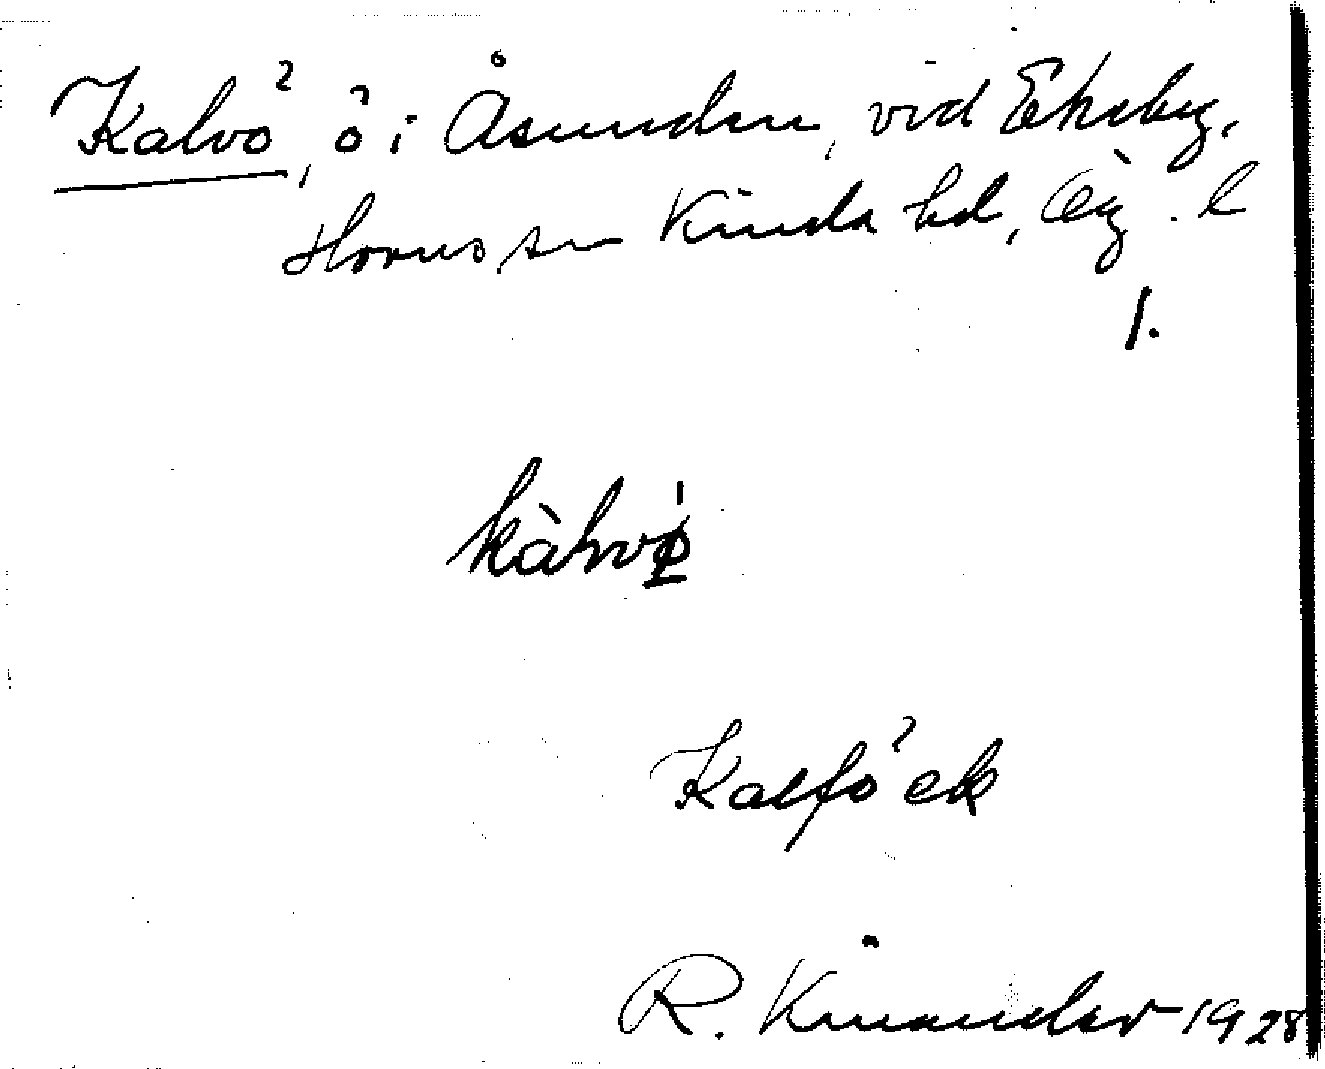 Kalvö, ö i Åsunden, vid Ekeby,
Horns sn Kinda hd, Ög. l
1.
kàlvö
Kalfö ek
R. Kinander 1928